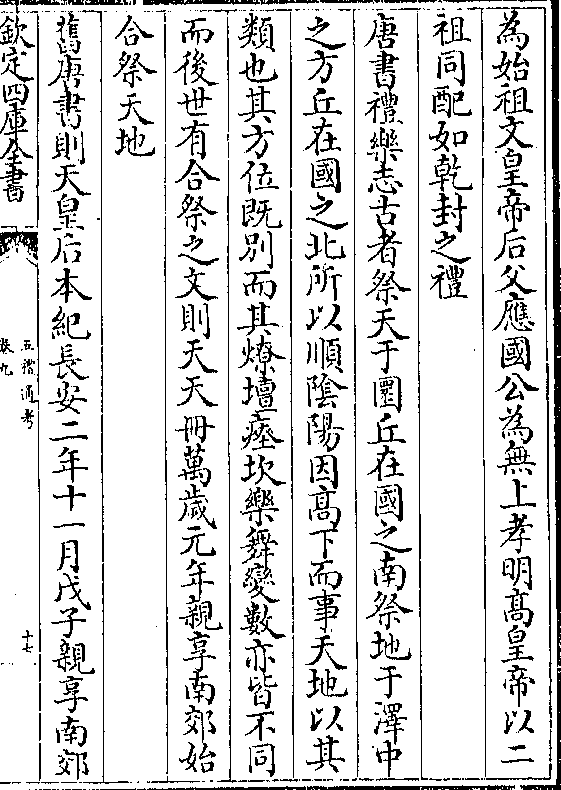 為始祖文皇帝后父應國公為無上孝明髙皇帝以二
祖同配如乾封之禮
唐書禮樂志古者祭天于圜丘在國之南祭地于澤中
之方丘在國之北所以順隂陽因髙下而事天地以其
類也其方位既別而其燎壇瘞坎樂舞變數亦皆不同
而後世有合祭之文則天天冊萬歳元年親享南郊始
合祭天地
舊唐書則天皇后本紀長安二年十一月戊子親享南郊
欽定四庫全書
五禮通考
卷九
十七